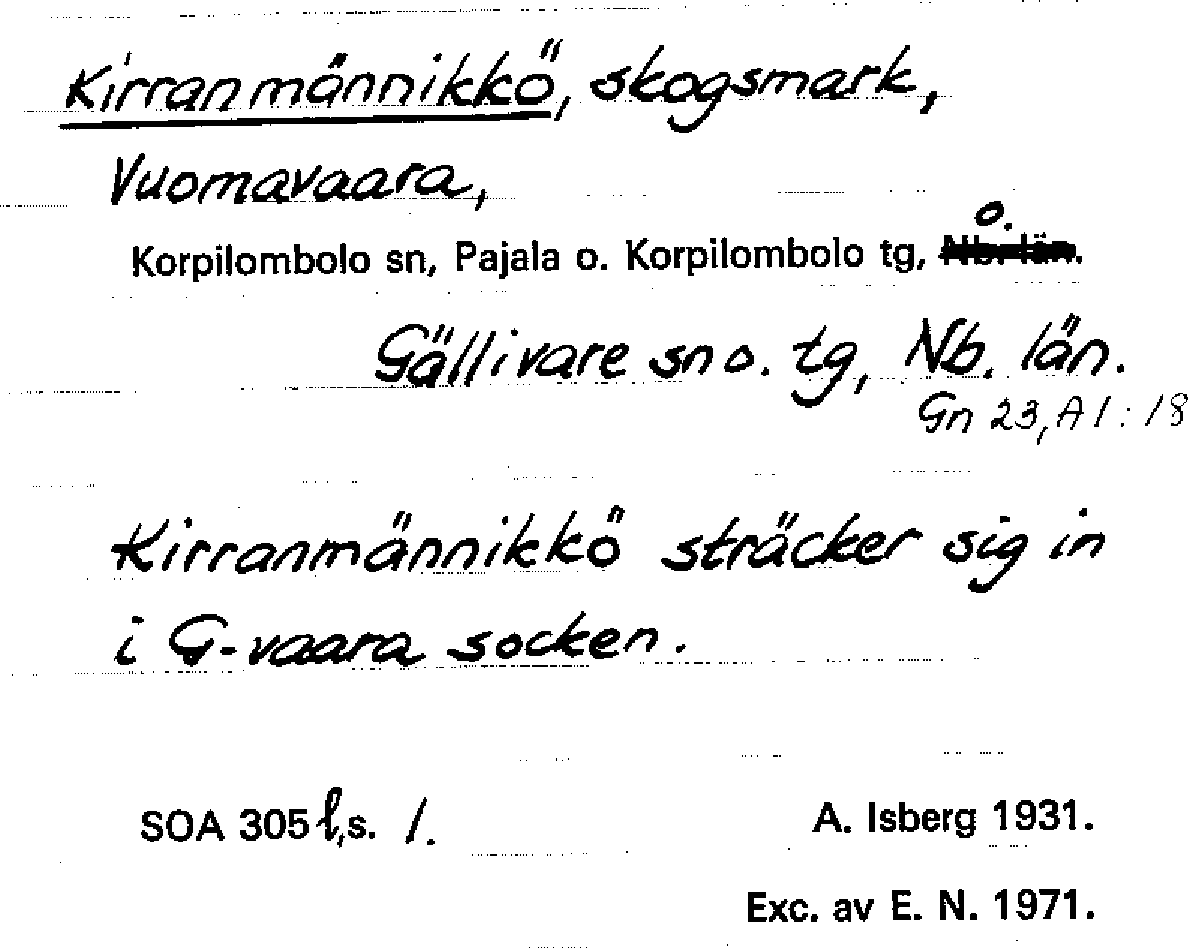 Kirranmännikkö, skogsmark,
Vuomavaara,
Korpilombolo sn, Pajala o. Korpilombolo tg, o.
Gällivare sn o. tg, Nb. län.
Gn 23, A1:18
Kirranmännikkö sträcker sig in
i G-vaara socken.
SOA 305 l, s. 1.
A. Isberg 1931.
Exc. av E. N. 1971.